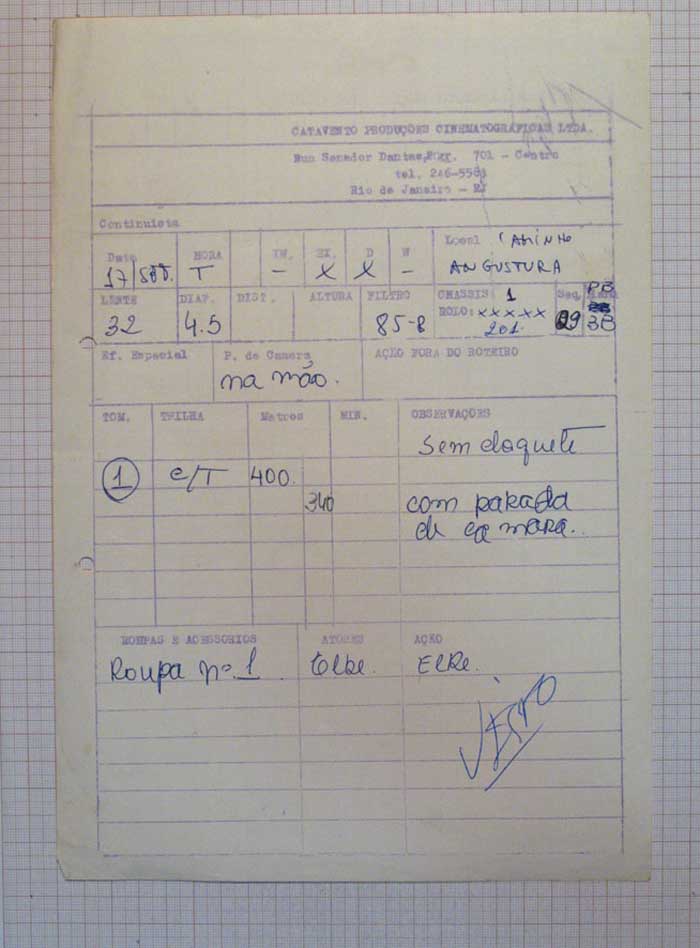 CATAVENTO PRODUÇÕES CINEMATOGRÁFICAS LTDA.
Rua Senador Dantas, 701 - Centro
tel. 246-5583
Rio de Janeiro - RJ
Continuista
Data HORA IN. EX. D N Local CAMINHO
17/SET. T - X X - ANGUSTURA
LENTE DIAF. DIST. ALTURA FILTRO CHASSIS: 1 Seq. PB
32 4.5 85-B ROLO: XXXXX 29 3B
201.
Ef. Especial P. de Camera AÇÃO FORA DO ROTEIRO
na mão.
TOM. TRILHA Metros MIN. OBSERVAÇÕES
Sem claquete
1 c/T 400.
340 com parada
de camara.
ROUPAS E ACESSORIOS ATORES AÇÃO
Roupa nº 1 Elke. Elke.
VISTO